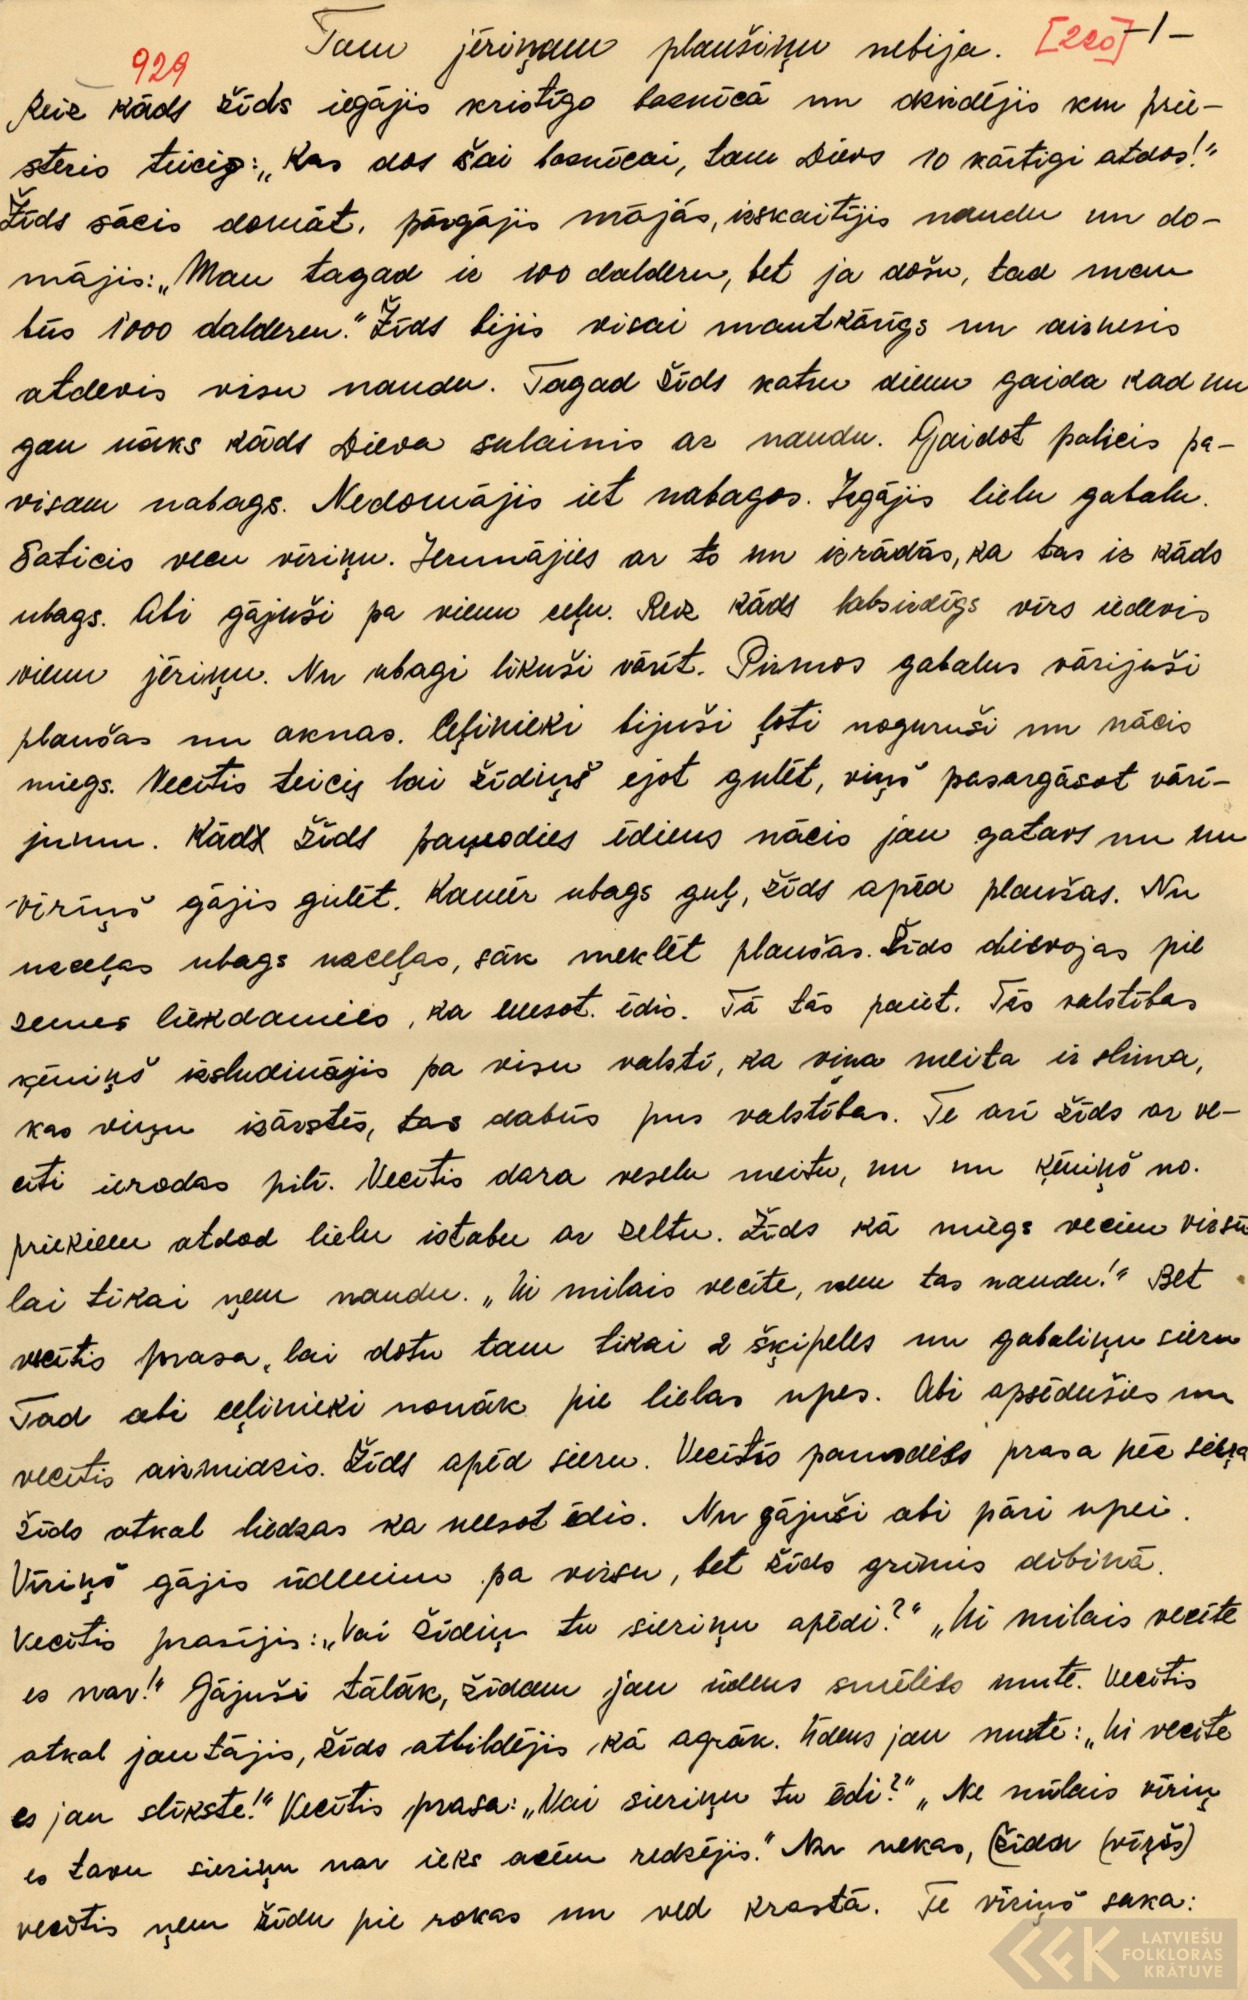 Tam jēriņam plaušiņu nebija. [220] -1-
929
Reiz kāds žīds iegājis kristīgo baznīcā un dzirdējis ku prie-
steris teicis: „Kas dos šai baznīcai, tam Dievs 10 kārtīgi atdos!"
Žīds sācis domāt, pārgājis mājās, izskaitījis naudu un do-
mājis: „Man tagad ir 100 dalderu, bet ja došu, tad man
būs 1000 dalderu." Žīds bijis visai mantkārīgs un aiznesis
atdevis visu naudu. Tagad žīds katru dienu gaida kad nu
gan nāks kāds Dieva sulainis ar naudu. Gaidot palicis pa-
visam nabags. Nedomājis iet nabagos. Izgājis lielu gabalu.
Saticis vecu vīriņu. Ierunājies ar to un izrādās, ka tas ir kāds
ubags. Abi gājuši pa vienu ceļu. Reiz kāds labsirdīgs vīrs iedevis
vienu jēriņu. Nu ubagi likuši vārīt. Pirmos gabalus vārijuši
plaušas un aknas. Ceļinieki bijuši ļoti noguruši un nācis
miegs. Vecītis teicis lai žīdiņš ejot gulēt, viņš pasargāsot vārī-
jumu. Kādx žīds pamodies ēdiens nācis jau gatavs un nu
vīriņš gājis gulēt. Kamēr ubags guļ, žīds apēd plaušas. Nu
uzceļas ubags uzceļas, sāk meklēt plaušas. Žīds dievojas pie
zemes liekdamies, ka neesot ēdis. Tā tās paiet. Tās valstības
ķēniņš izsludinājis pa visu valsti, ka viņa meita ir slima,
kas viņu izārstēs, tas dabūs pus valstības. Te arī žīds ar ve-
cīti ierodas pilī. Vecītis dara veselu meitu, un nu ķēniņš no.
priekiem atdod lielu istabu ar zeltu. Žīds kā miegs vecim virsū
lai tikai ņem naudu. „Ui mīlais vecīte, ņem tas naudu!" Bet
vecītis prasa, lai dotu tam tikai 2 šķipeles un gabaliņu sieru
Tad abi ceļinieki nonāk pie lielas upes. Abi apsēdušies un
vecītis aizmidzis. Žīds apēd sieru. Vecītis pamodies prasa pēc siera
žīds atkal liedzas ka neesot ēdis. Nu gājuši abi pāri upei.
Vīriņš gājis ūdenim pa virsu, bet žīds grimis dibinā.
Vecītis prasījis: „Vai žīdiņ tu sieriņu apēdi?" „Ui mīlais vecīte
es nav!" Gājuši tālāk, žīdam jau ūdens smēlies mutē. Vecītis
atkal jautājis, žīds atbildējis kā agrāk. Ūdens jau mutē: „Ui vecīte
es jau slīkste!" Vecītis prasa: „Vai sieriņu tu ēdi?" „Ne mīlais vīriņ
es tavu sieriņu nav ieks acīm redzējis." Nu nekas, (žīdu (vīrišs)
vecītis ņem žīdu pie rokas un ved krastā. Te vīriņš saka:
LATVIEŠU
FOLKLORAS
KRĀTUVE